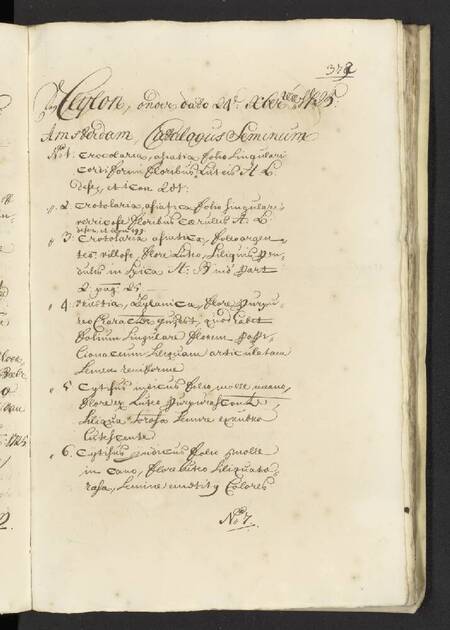 372
Ceylon, onder dato 24e Xber 1725.
Amsterdam, Catalogus Seminum
No. 1. Crotolaria, asiatica folio singulari
cordiformi floribus luteis H. L.
Desc, et icon 201:
" 2. Crotolaria, asiatica folio singulari
verrucoso floribus caeruleis H. L.
" 3. Crotolaria asiatica, folio argen=
teo villoso, flore luteo, siliquis pen=
dulis in spica H: B nis part
2 pag: 25
" 4. Zeylanica, flore purpu=
reo Character quod habet
folium singulare florem papi=
lionaceum siliquam articulatam
semen reniforme
" 5 Cytisus indicus folio molle incano,
flore ex luteo purpurascente
siliqua torosa semine ex rubro
lutescente
" 6. Cytisus, indicus folio molle
incano, flore luteo siliqua to=
rosa, semine Coloris
No. 7.
1725